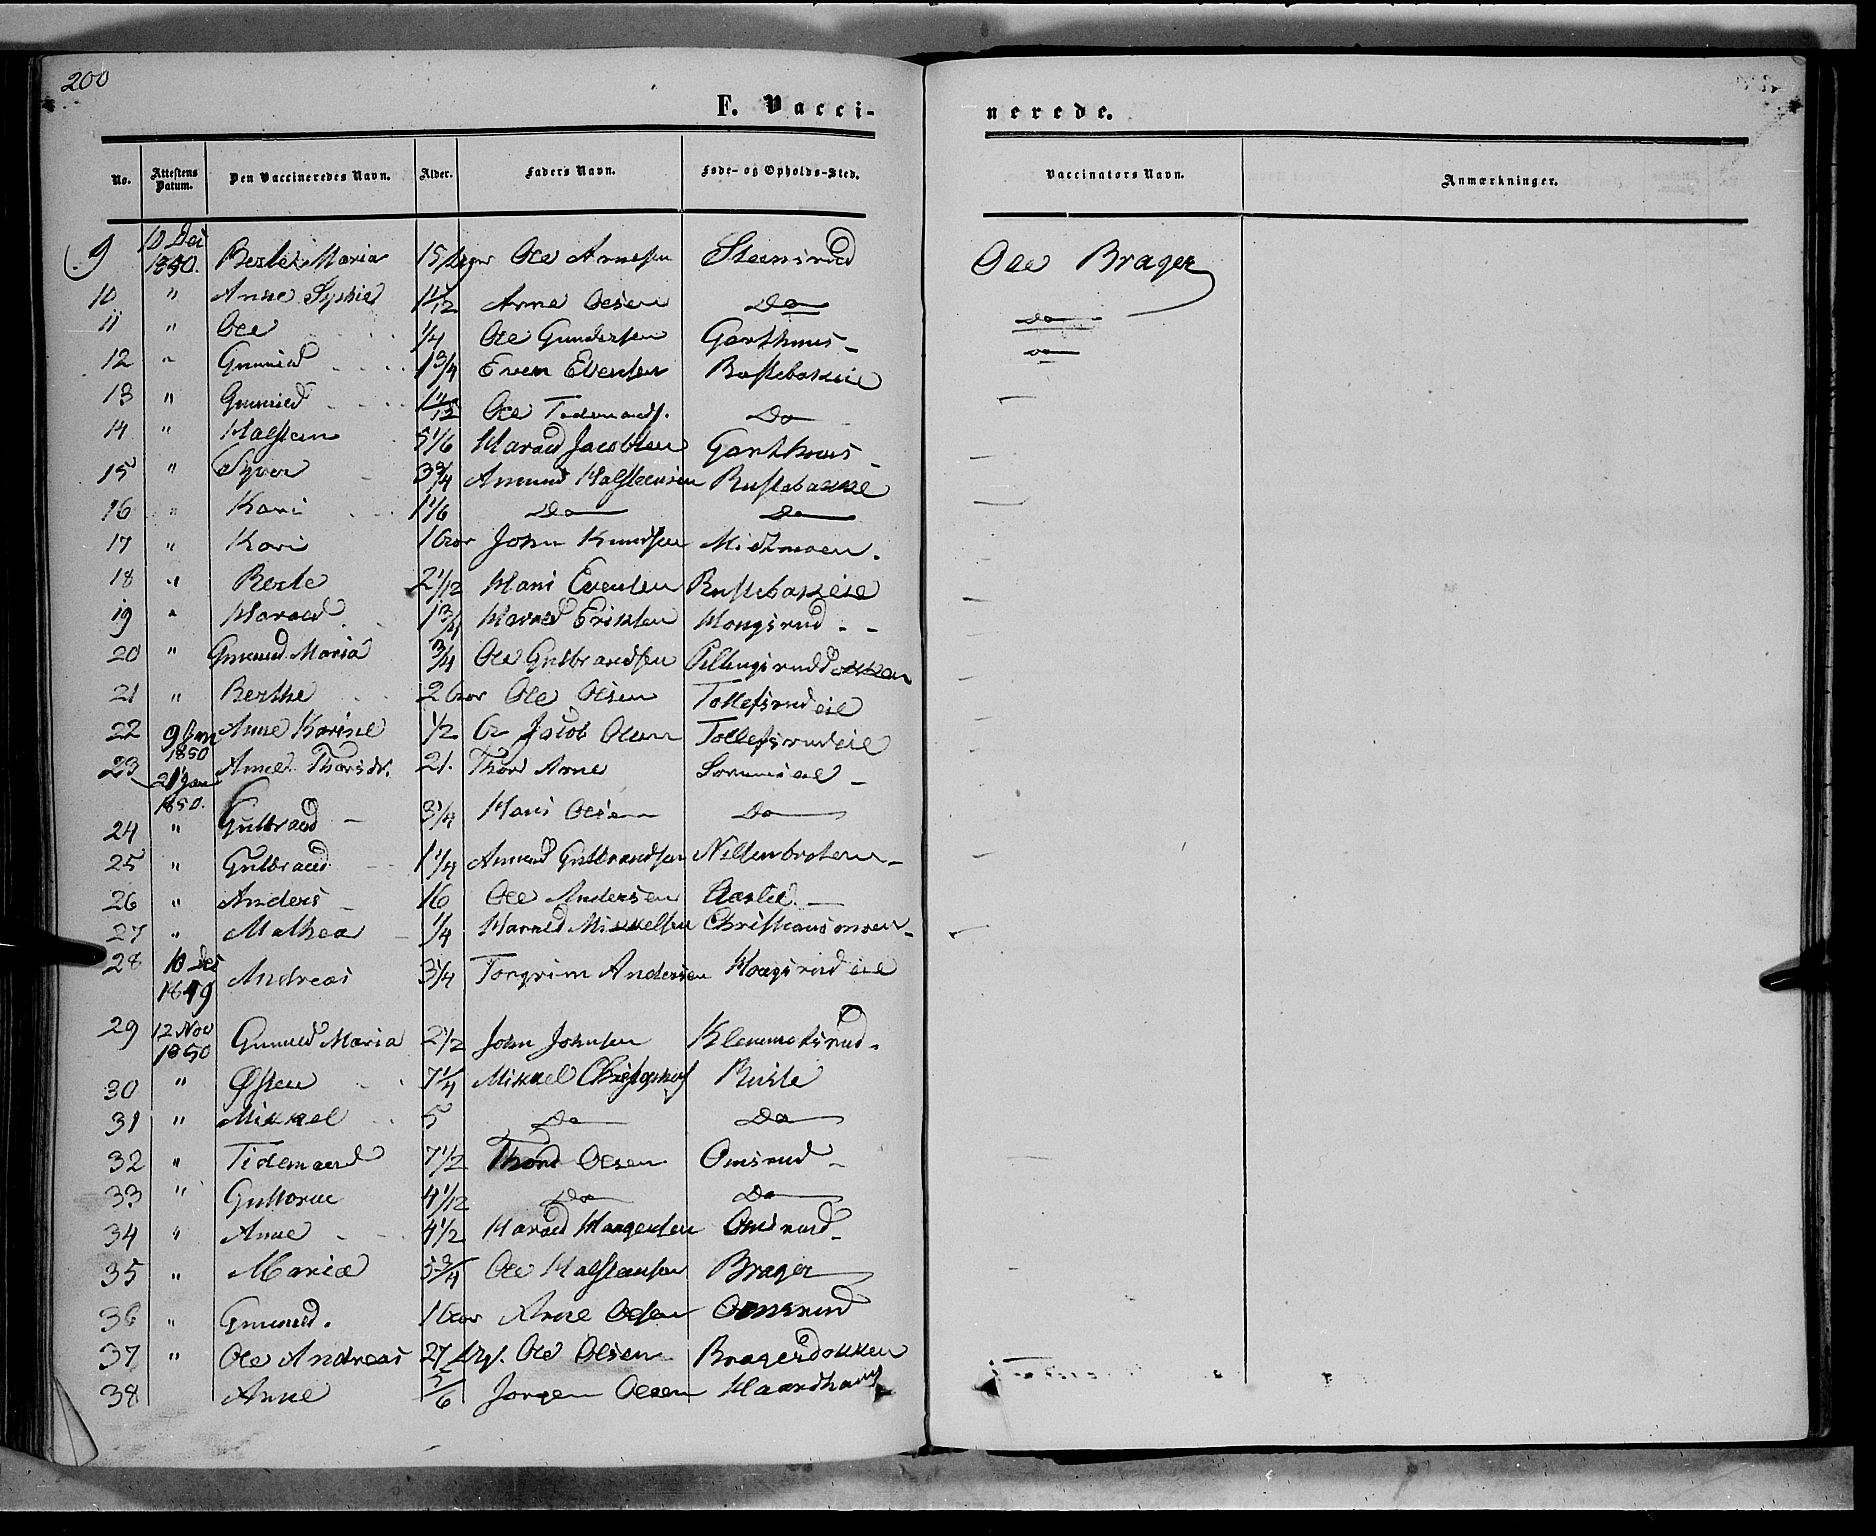 200
F. Vacci-
nerede.
No. Attestens Datum. Den Vaccineredes Navn. Alder. Faders Navn. Føde- og Opholds-Sted.
Vaccinators Navn. Anmærkninger.
9 10 Dec 1850. Berte Maria 15 Ole Arnesen Steensrud Ole Brager
10 " Anne Sophie Arne Olsen Do Do
11 " Ole 1/4 Ole Gundersen Garthuus - Do
12 " Gunild 1 3/4 Even Evensen
13 " Gunild Ole Tidemands. Do
14 " Halsteen 5 1/6 Harald Jacobsen Garthuus -
15 " Syver 3 3/4 Amund Halsteensen Rustebakke
16 " Kari 1 1/6 Do Do
17 " Kari 1 John Knudsen Midtmoen.
18 " Berte 2 1/12 Hans Evensen Rustebakeie
19 " Harald 1 3/4 Harald Eriksen Haugsrud - -
20 " Gunild Maria 3/4 Ole Gulbrandsen
21 " Berthe 2 Ole Olsen Tollefsrudeie
22 9 Jan 1850 Anne Karine 1/2 Jacob Olsen Tollefsrudeie
23 21 Jan 1850. Anne Thorsdr. 21. Thor Arne
24 " Gulbrand - 3 1/4 Hans Olsen Do
25 " Gulbrand 1 1/4 Amund Gulbrandsen
26 " Anders - 16 Ole Andersen
27 " Mathea - 1/4 Harald Mikkelsen Christiansmoen -
28 10 Dec 1849 Andreas 3 1/4 Torgrim Andersen Haugsrudeie
29 12 Nov 1850 Gunild Maria 2 1/2 John Johnsen Klemmetsrud -
30 " Østen 7 1/4 Mikkel Christophers Ruste
31 " Mikkel 5 Do Do
32 " Tidemand 7 1/2 Thord Olsen Omsrud -
33 " Guttorm 4 1/12 Do Do
34 " Anne 4 1/2 Harald Haagensen Omsrud -
35 " Maria 5 3/4 Ole Halsteensen Brager
36 " Gunild. 1 Arne Olsen Omsrud
37 " Ole Andreas 27 Ole Olsen Bragerdokken
38 Anne 5/6 Jørgen Olsen